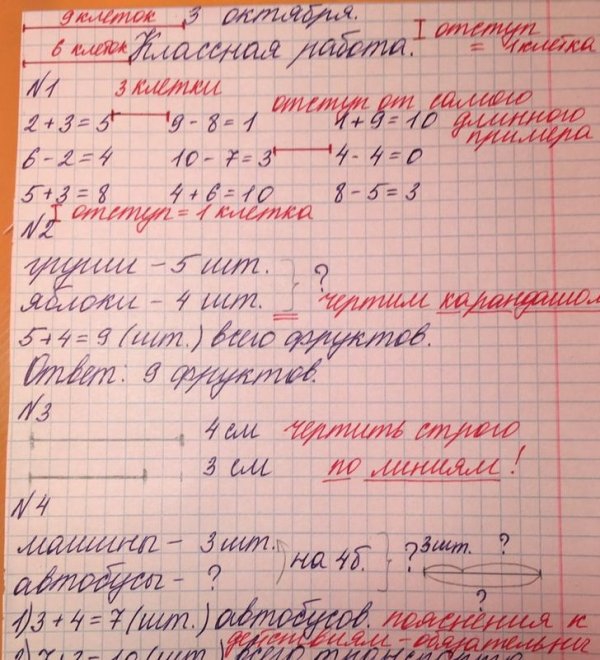 9 клеток 3 октября.
6 клеток Классная работа. отступ = 1 клетка
№1 3 клетки
отступ от самого длинного примера
2+3=5 9-8=1 1+9=10
6-2=4 10-7=3 4-4=0
5+3=8 4+6=10 8-5=3
отступ = 1 клетка
№2
груши - 5 шт.
яблоки - 4 шт. ? чертим карандашом
5+4=9 (шт.) всего фруктов.
Ответ: 9 фруктов.
№3
4 см чертить строго
3 см по линиям!
№4
машины - 3 шт. на 4 б. ? 3 шт. ?
автобусы - ? ?
1) 3+4=7 (шт.) автобусов. пояснения к
действиям - обязательны
2) 7+3=10 (шт.) всего